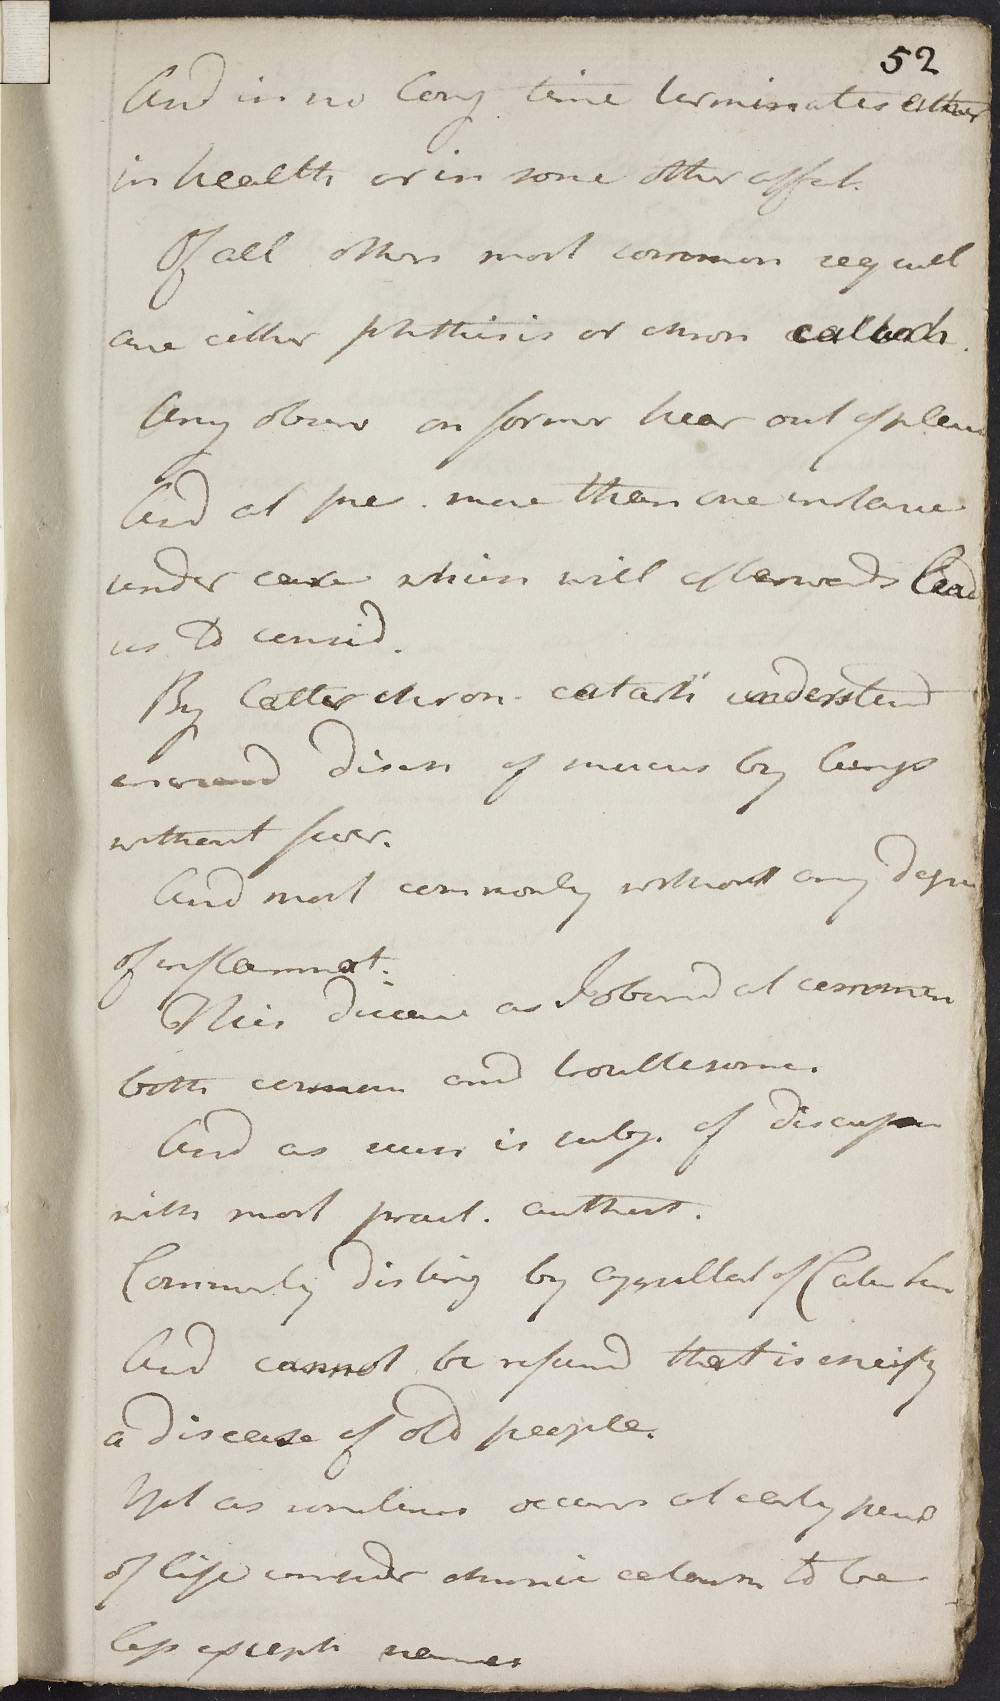 52
And in no long time terminates either
in health or in some other affect.
Of all others most common sequel
are either phthisis or chron catarh.
Any observ on former hear out of place
And at pre. more than one instance
under care which will afterwards lead
us to consid.
By latter chron. catarh understand
increased disch of mucus by lungs
without fever.
And most commonly without any degree
of inflammat.
This disease as I observd at commen
both common and troublesome.
And as such is subj. of discussion
with most pract. authors.
Commonly disting by appellat of
And cannot be refused that is chiefly
a disease of old people.
Yet as sometimes occurs at early period
of life consider chronic catarrh to be
less except names